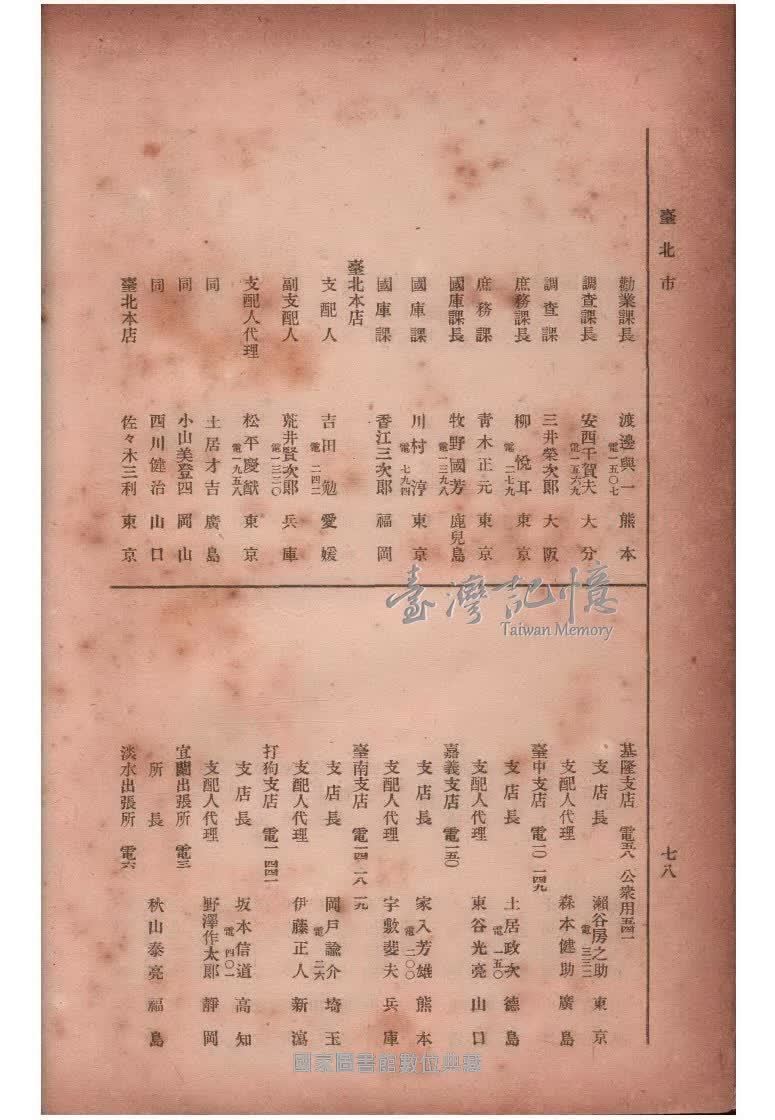 臺北市
七八
勸業課長 渡邊與一 熊本
電一五〇七
調査課長 安西千賀夫 大分
電一五六九
調査課 三井榮次郎 大阪
庶務課長 柳悅耳 東京
電二七九
庶務課 靑木正元 東京
國庫課長 牧野國芳 鹿兒島
電一三九八
國庫課 川村淳 東京
電七九四
國庫課 香江三次郎 福岡
臺北本店
支配人 吉田勉 愛媛
電二四二
副支配人 荒井賢次郎 兵庫
電一三三〇
支配人代理 松平慶猷 東京
電一九五八
同 土居才吉 廣島
同 小山美登四 岡山
同 西川健治 山口
臺北本店 佐々木三利 東京
基隆支店 電五八 公衆用五四一
支店長 瀨谷房之助 東京
電三三二
支配人代理 森本健助 廣島
臺中支店 電一〇 一四九
支店長 土居政次 德島
電一五〇
支配人代理 東谷光亮 山口
嘉義支店 電一五〇
支店長 家入芳雄 熊本
電二〇〇
支配人代理 宇敷斐夫 兵庫
臺南支店 電一四 一八 一九
支店長 岡戸諭介 埼玉
電二六
支配人代理 伊藤正人 新瀉
打狗支店 電一四四一
支店長 坂本信道 高知
電四〇一
支配人代理 野澤作太郎 靜岡
宜蘭出張所 電三
所長 秋山泰亮 福島
淡水出張所 電六
臺灣記憶
Taiwan Memory
國家圖書館數位典藏